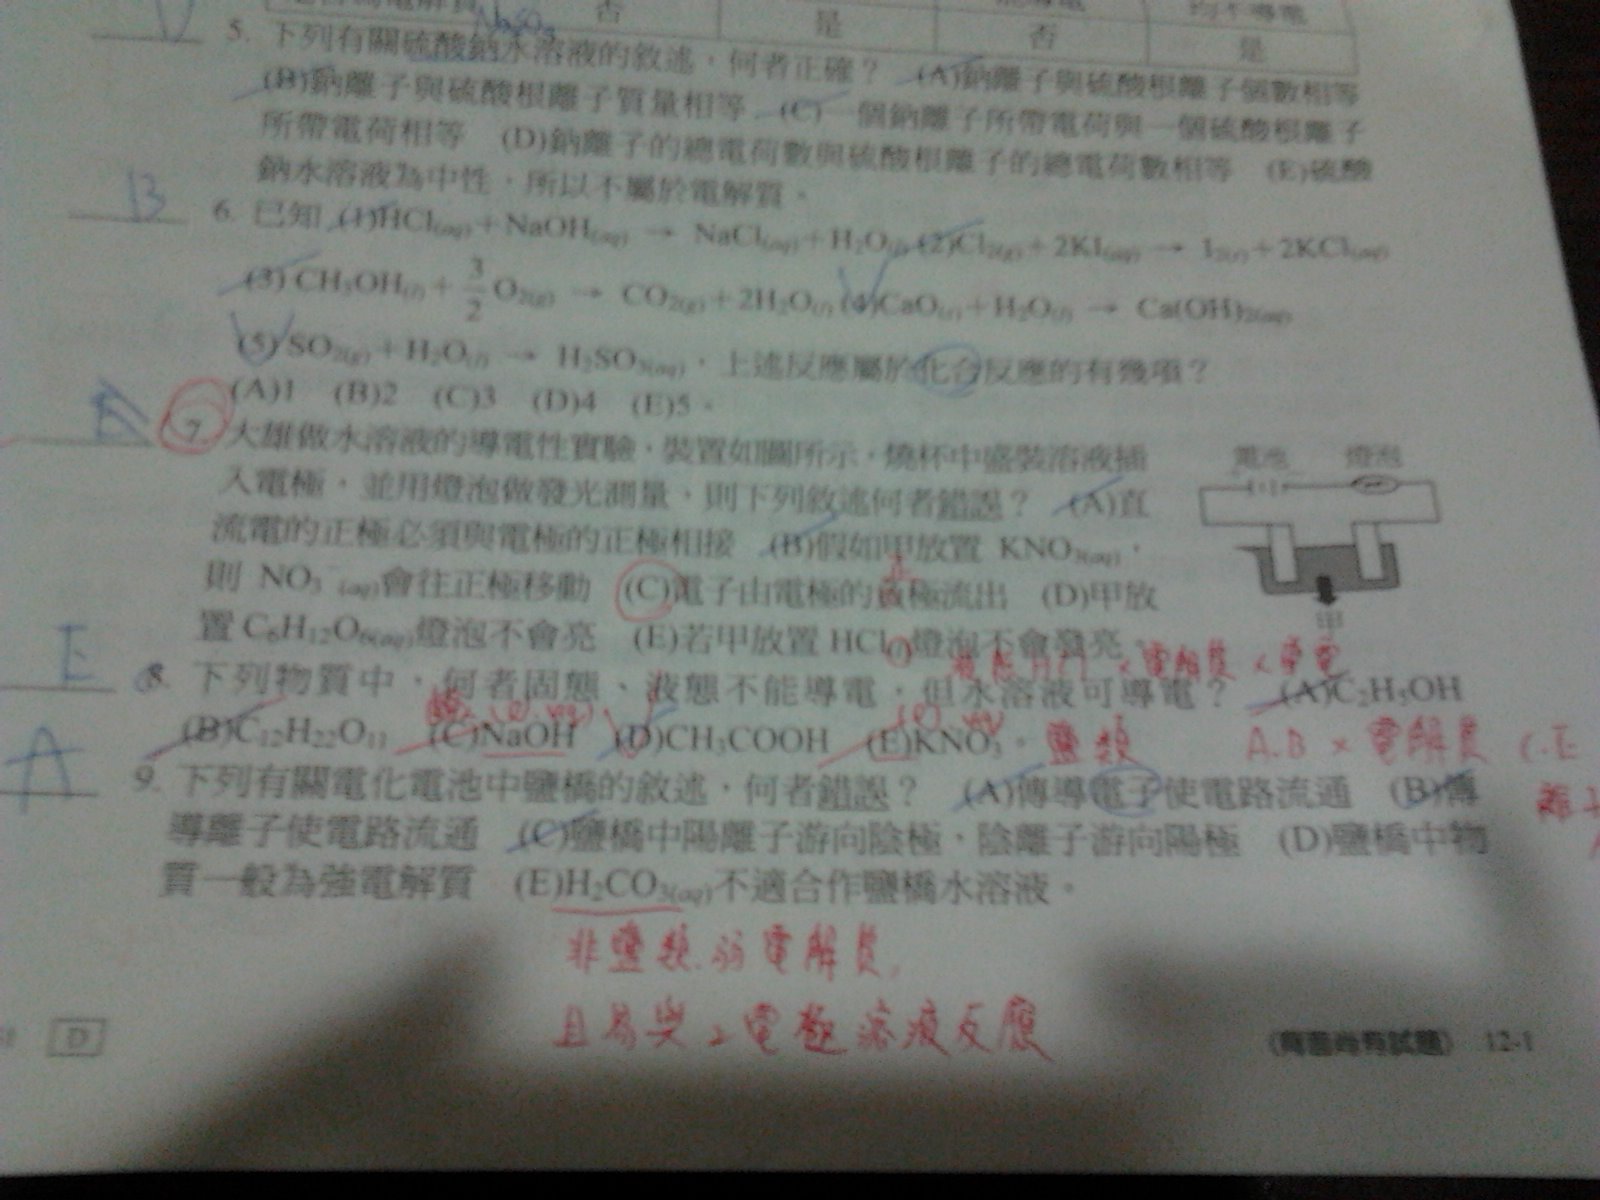 否 是 否 是
Na₂SO₄
5. 下列有關硫酸鈉水溶液的敘述，何者正確？ (A)鈉離子與硫酸根離子個數相等
(B)鈉離子與硫酸根離子質量相等 (C)一個鈉離子所帶電荷與一個硫酸根離子
所帶電荷相等 (D)鈉離子的總電荷數與硫酸根離子的總電荷數相等 (E)硫酸
鈉水溶液為中性，所以不屬於電解質。
B 6. 已知 (1)HCl(aq)+NaOH(aq) → NaCl(aq)+H₂O(l) (2)Cl₂(g)+2KI(aq) → I₂(s)+2KCl(aq)
(3)CH₃OH(l)+3/2 O₂(g) → CO₂(g)+2H₂O(l) (4)CaO(s)+H₂O(l) → Ca(OH)₂(aq)
(5)SO₂(g)+H₂O(l) → H₂SO₃(aq)，上述反應屬於化合反應的有幾項？
(A)1 (B)2 (C)3 (D)4 (E)5。
7. 大雄做水溶液的導電性實驗，裝置如圖所示，燒杯中盛裝溶液插
入電極，並用燈泡做發光測量，則下列敘述何者錯誤？ (A)直
流電的正極必須與電極的正極相接 (B)假如甲放置 KNO₃(aq)，
則 NO₃⁻(aq)會往正極移動 (C)電子由電極的負極流出 (D)甲放
正
置 C₆H₁₂O₆(aq)燈泡不會亮 (E)若甲放置 HCl(l)燈泡不會發亮。
電池 燈泡
甲
液態HCl × 電解質 × 導電
E 8. 下列物質中，何者固態、液態不能導電，但水溶液可導電？ (A)C₂H₅OH
(l), (aq)
(B)C₁₂H₂₂O₁₁ (C)NaOH (D)CH₃COOH (E)KNO₃。 鹽類 A.B × 電解質 C.E
A 9. 下列有關電化電池中鹽橋的敘述，何者錯誤？ (A)傳導電子使電路流通 (B)傳
導離子使電路流通 (C)鹽橋中陽離子游向陰極，陰離子游向陽極 (D)鹽橋中物
質一般為強電解質 (E)H₂CO₃(aq)不適合作鹽橋水溶液。
非鹽類.弱電解質,
且易與2電極溶液反應
D
(背面尚有試題) 12-1